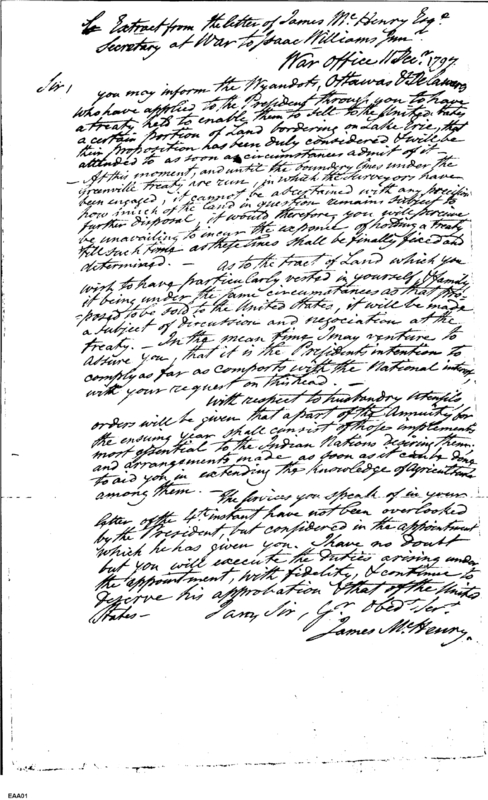 Extract from the letter of James Mc.Henry Esqe.
Secretary at War to Isaac Williams Junr.
War office 11 Decr. 1797
Sir,
you may inform the Wyandots, Ottawas & Delawars
who have applied to the President through you to have
a treaty held to enable them to sell to the United States
a certain portion of Land bordering on Lake Erie, that
their proposition has been duly considered & will be
attended to as soon as circumstances admit of it.
At this moment, and until the boundary lines under the
Greenville treaty are run, in which the surveyors have
been engaged, it cannot be ascertained with any precision
how much of the land in question remains subject to
further disposal, it would therefore, you will perceive
be unavailing to incur the expence of holding a treaty
till such time as these lines shall be finally fixed and
determined. — As to the tract of Land which you
wish to have particularly vested in yourself & family
it being under the same circumstances as that pro-
-posed to be sold to the United States, it will be made
a subject of discussion and negociation at the
treaty. — In the mean time I may venture to
assure you, that it is the Presidents intention to
comply as far as comports with the National interest,
with your request on this head. —
With respect to husbandry utensils
orders will be given that a part of the Annuity for
the ensuing year shall consist of those implements
most essential to the Indian Nations desiring them
and arrangements made as soon as it can be done
to aid you in extending the knowledge of Agriculture
among them. — The services you speak of in your
letter of the 4th. instant have not been overlooked
by the President, but considered in the appointment
which he has given you. I have no doubt
but you will execute the Duties arising under
the appointment, with fidelity, & continue to
deserve his approbation & that of the United
States — I am, Sir, Yr. Obedt. Sert.
James Mc.Henry.
EAA01